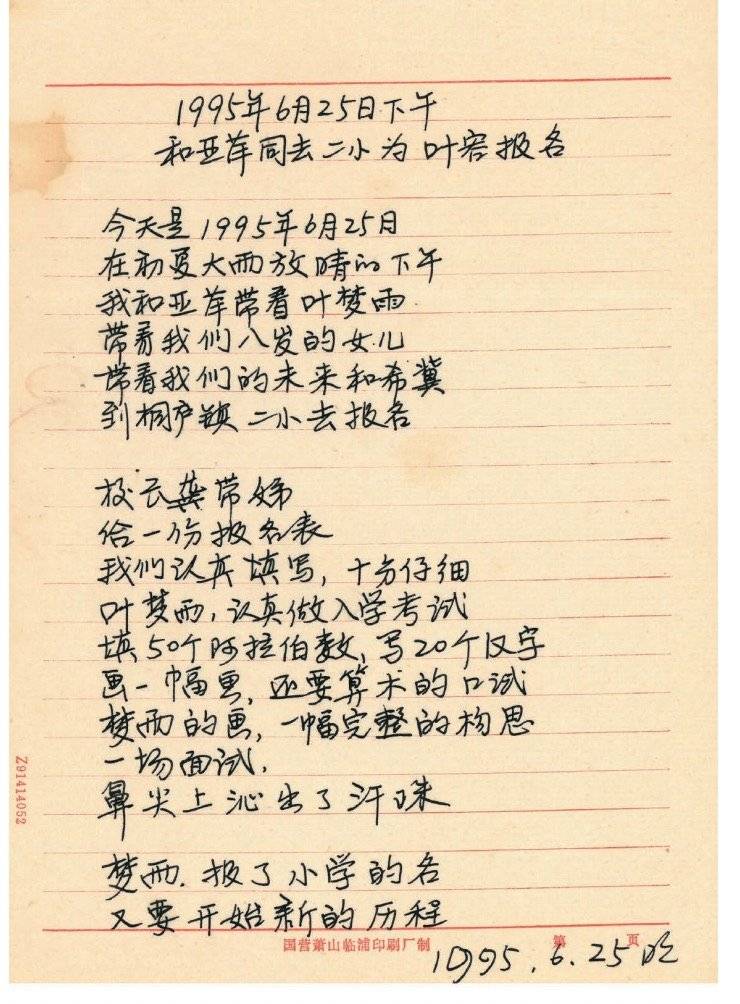 1995年6月25日下午
和亚萍同去二小为叶容报名
今天是1995年6月25日
在初夏大雨放晴的下午
我和亚萍带着叶梦雨
带着我们八岁的女儿
带着我们的未来和希冀
到桐庐镇二小去报名
校长龚带娣
给一份报名表
我们认真填写，十分仔细
叶梦雨，认真做入学考试
填50个阿拉伯数，写20个汉字
画一幅画，还要算术的口试
梦雨的画，一幅完整的构思
一场面试，
鼻尖上沁出了汗珠
梦雨．报了小学的名
又要开始新的历程
国营萧山临浦印刷厂制
第 页
1995.6.25晚
Z91414052